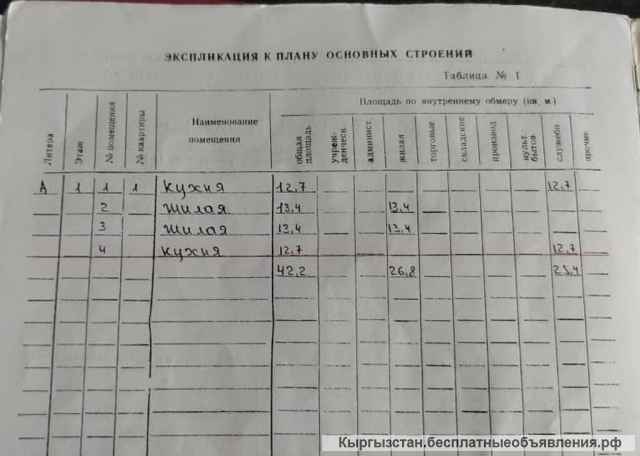 ЭКСПЛИКАЦИЯ К ПЛАНУ ОСНОВНЫХ СТРОЕНИЙ
Таблица № 1
Литера Этаж № помещения № квартиры Наименование помещения Площадь по внутреннему обмеру (кв. м.)
общая площадь учреж- денческ. админист. жилая торговые складские производ культ бытов. служебн прочие
А 1 1 1 Кухня 12,7 12,7
2 Жилая 13,4 13,4
3 Жилая 13,4 13,4
4 Кухня 12,7 12,7
42,2 26,8 25,4
Кыргызстан.бесплатныеобъявления.рф